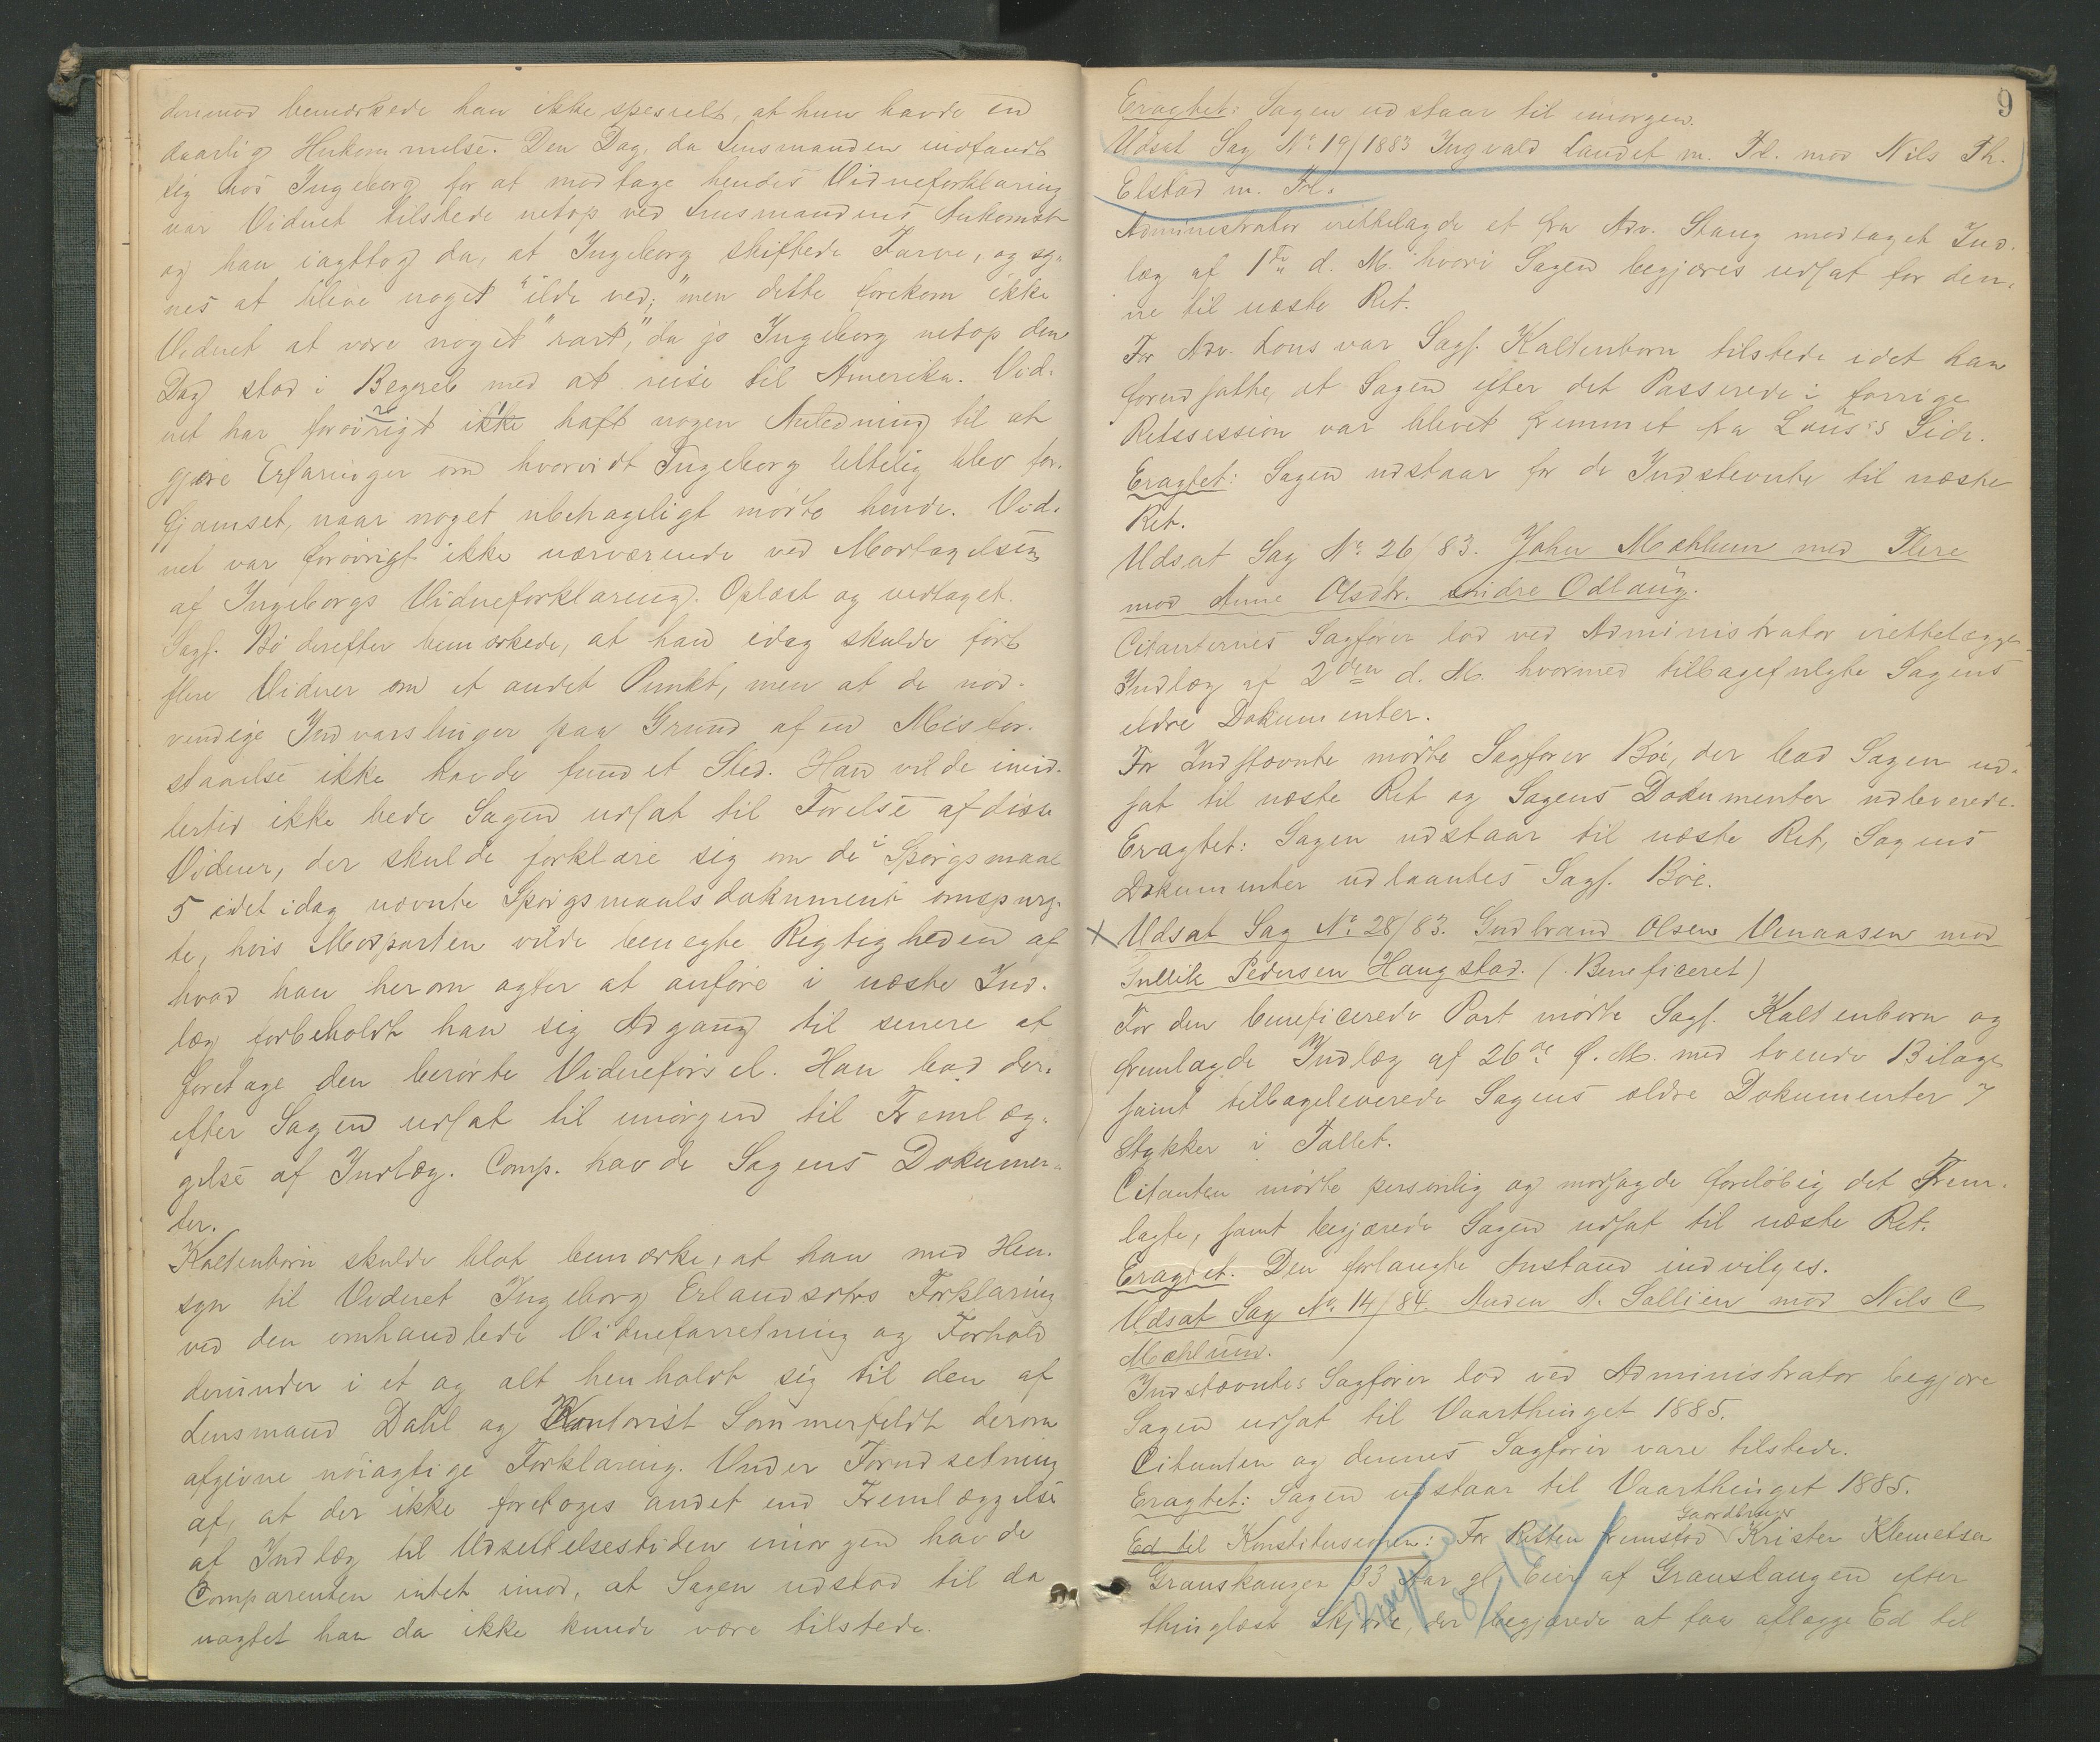 derimod bemærkede han ikke specielt, at hun havde en
daarlig Hukommelse. Den Dag, da Lensmanden indfandt
sig hos Ingeborg for at modtage hendes Vidneforklaring
var Vidnet tilstede netop ved Lensmandens Ankomst
og han iagttog da, at Ingeborg skiftede Farve, og sy-
nes at blive noget "ilde ved;" men dette forekom ikke
Vidnet at være noget "rart," da jo Ingeborg netop den
Dag stod i Begreb med at reise til Amerika. Vid-
net har forøvrigt ikke haft nogen Anledning til at
gjøre Erfaringer om hvorvidt Ingeborg lettelig blev for-
fjamset, naar noget ubehageligt mødte hende. Vid-
net var forøvrigt ikke nærværende ved Modtagelsen
af Ingeborgs Vidneforklaring. Oplæst og vedtaget.
Sagf. Bö derefter bemærkede, at han idag skulde ført
flere Vidner om et andet Punkt, men at de nød-
vendige Indvarslinger paa Grund af en Misfor-
staaelse ikke havde fundet Sted. Han vilde imid-
lertid ikke bede Sagen udsat til Førelse af disse
Vidner, der skulde forklare sig om de i Spørgsmaal
5 i det idag nævnte Spørgsmaalsdokument omspurg-
te, hvis Modparten vilde benegte Rigtigheden af
hvad han herom agter at anføre i næste Ind-
læg forbeholdt han sig Adgang til senere at
foretage den berørte Vidneførsel. Han bad der-
efter Sagen udsat til imorgen til Fremlæg-
gelse af Indlæg. Comp. havde Sagens Dokumen-
ter.
Kaltenborn skulde blot bemærke, at han med Hen-
syn til Vidnet Ingeborg Erlandsdtrs Forklaring
ved den omhandlede Vidneforretning og Forhold
derunder i et og alt henholdt sig til den af
Lensmand Dahl og Kontorist Sommerfeldt derom
afgivne nøiagtige Forklaring. Under Forudsetning
af, at der ikke foretages andet end Fremlæggelse
af Indlæg til Udsettelsestiden imorgen havde
Comparenten intet imod, at Sagen udstod til da
uagtet han da ikke kunde være tilstede.
9
Eragtet: Sagen udstaar til imorgen.
Udsat Sag No 19/1883 Ingvald Landet m. Fl. mod Nils Th.
Elstad m. Fl.
Administrator irettelagde et fra Adv. Stang modtaget Ind-
læg af 1ste d. M. hvori Sagen begjæres udsat for den-
ne til næste Ret.
For Adv. Lous var Sagf. Kaltenborn tilstede idet han
forudsatte, at Sagen efter det Passerede i forrige
Retssession var blevet fremmet fra Lous's Side.
Eragtet: Sagen udstaar for de Indstevnte til næste
Ret.
Udsat Sag No. 26/83. John Mæhlum med Flere
mod Anne Olsdtr. Indre Odlaug.
Citanternes Sagfører lod ved Administrator irettelægge
Indlæg af 2den d. M. hvormed tilbagefulgte Sagens
eldre Dokumenter.
For Indstævnte mødte Sagfører Böe, der bad Sagen ud-
sat til næste Ret og Sagens Dokumenter udleverede.
Eragtet: Sagen udstaar til næste Ret, Sagens
Dokumenter udlaantes Sagf. Böe.
X Udsat Sag No. 28/83. Gudbrand Olsen Venaasen mod
Gullik Pedersen Haugstad. (Beneficeret)
For den beneficerede Part mødte Sagf. Kaltenborn og
fremlagde Indlæg af 26de f. M. med tvende Bilage
samt tilbageleverede Sagens ældre Dokumenter 7
Stykker i Tallet.
Citanten mødte personlig og modsagde foreløbig det Frem-
lagte, samt begjærede Sagen udsat til næste Ret.
Eragtet. Den forlangte Anstand indvilges.
Udsat Sag No. 14/84. Anden N. Sollien mod Nils C
Mæhlum.
Indstævntes Sagfører lod ved Administrator begjære
Sagen udsat til Vaarthinget 1885.
Citanten og dennes Sagfører vare tilstede.
Eragtet: Sagen udstaar til Vaarthinget 1885.
Gaardbruger
Ed til Konstitusionen: For Retten fremstod Kristen Klemetsen
33 Aar gl. Eier af efter
thinglæst Skjøde, der begjærede at faa aflægge Ed til